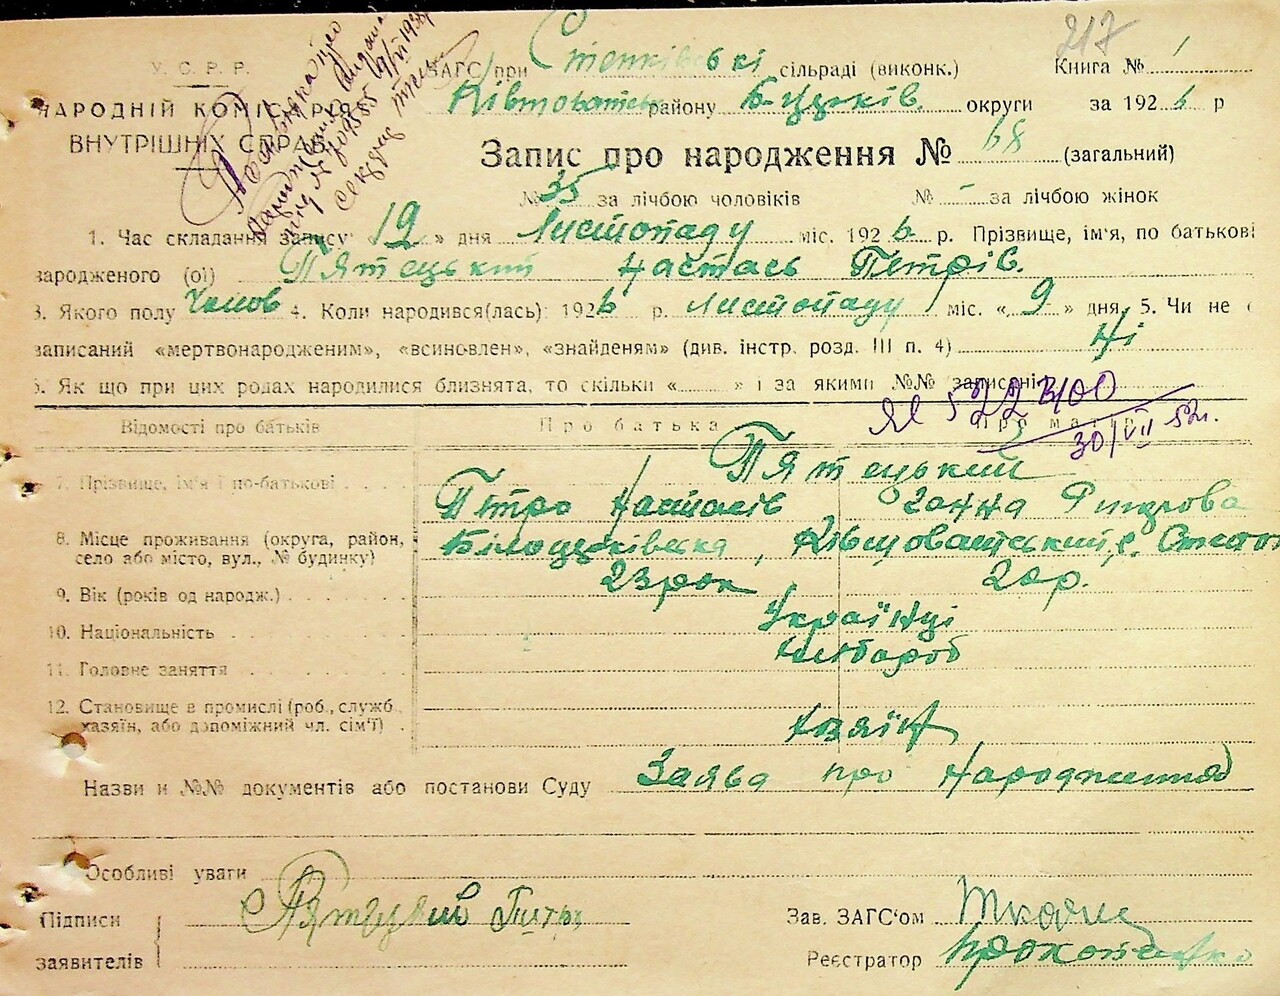 217
У.С.Р.Р.
НАРОДНІЙ КОМІСАРІЯТ
ВНУТРІШНІХ СПРАВ
ЗАГС при Степківській сільраді (виконк.) Книга № 1
району Б-Цуьків. округи за 1926 р
Запис про народження № 68 (загальний)
№ 35 за лічбою чоловіків № - за лічбою жінок
1. Час складання запису 19 » дня Листопаду міс. 1926 р. Прізвище, ім'я, по батькові
народженого (ої) Пятецький Настась Петрів.
3. Якого полу Чолов 4. Коли народився(лась): 1926 р. Листопаду міс. «9» дня, 5. Чи не
записаний «мертвонародженим», «всиновлен», «знайденям» (див. інстр. розд. III п. 4) Ні
6. Як що при цих родах народилися близнята, то скільки «......» і за якими №№ записані
522300
30/VII 52г.
Відомості про батьків Про батька Про матір
Пятецький
7. Прізвище, ім'я і по-батькові Петро Настасів Ганна
8. Місце проживання (округа, район, село або місто, вул., № будинку) Білоцерківська,
9. Вік (років од народж.) 23 рок 20 р.
10. Національність Українці
11. Головне заняття хлібороб
12. Становище в промислі (роб., служб. хазяїн, або допоміжний чл. сім'ї) Хазяїн
Назви и №№ документів або постанови Суду Заява про народження
Особливі уваги
Підписи заявителів Пятецкий Петр
Зав. ЗАГС'ом Ткач
Реєстратор Прокопенко